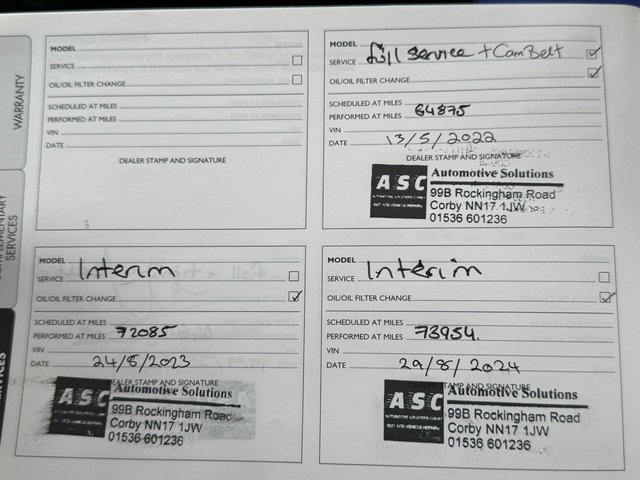 WARRANTY
SERVICES
MODEL
SERVICE
OIL/OIL FILTER CHANGE
SCHEDULED AT MILES
PERFORMED AT MILES
VIN
DATE
DEALER STAMP AND SIGNATURE
MODEL full service + Cam Belt
SERVICE
OIL/OIL FILTER CHANGE
SCHEDULED AT MILES
PERFORMED AT MILES 64875
VIN
DATE 13/5/2022
DEALER STAMP AND SIGNATURE
ASC Automotive Solutions
99B Rockingham Road
Corby NN17 1JW
01536 601236
MODEL Interim
SERVICE
OIL/OIL FILTER CHANGE
SCHEDULED AT MILES
PERFORMED AT MILES 72085
VIN
DATE 24/8/2023
DEALER STAMP AND SIGNATURE
ASC Automotive Solutions
99B Rockingham Road
Corby NN17 1JW
01536 601236
MODEL Interim
SERVICE
OIL/OIL FILTER CHANGE
SCHEDULED AT MILES
PERFORMED AT MILES 73954.
VIN
DATE 29/8/2024
DEALER STAMP AND SIGNATURE
ASC Automotive Solutions
99B Rockingham Road
Corby NN17 1JW
01536 601236